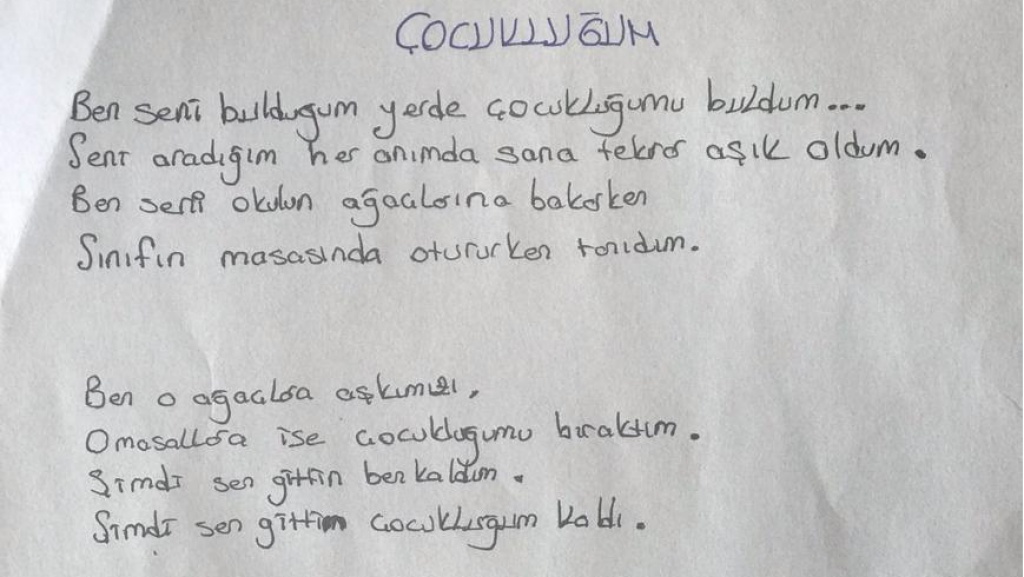 ÇOCUKLUĞUM
Ben seni bulduğum yerde çocukluğumu buldum...
Seni aradığım her anımda sana tekrar aşık oldum.
Ben seni okulun ağaçlarına bakarken
Sınıfın masasında otururken tanıdım.
Ben o ağaçlara aşkımızı,
O masallara ise çocukluğumu bıraktım.
Şimdi sen gittin ben kaldım.
Şimdi sen gittin çocukluğum kaldı.